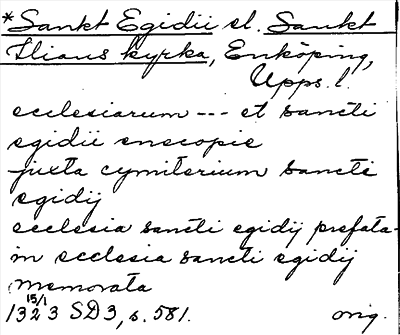 *Sankt Egidii el. Sankt
Ilians kyrka, Enköping,
Upps. l.
ecclesiarum --- et sancti
egidii enecopie
juxta cymiterium sancti
egidij
ecclesia sancti egidij prefata-
in ecclesia sancti egidij
memorata
15/1
1323 SD3, s. 581. orig.